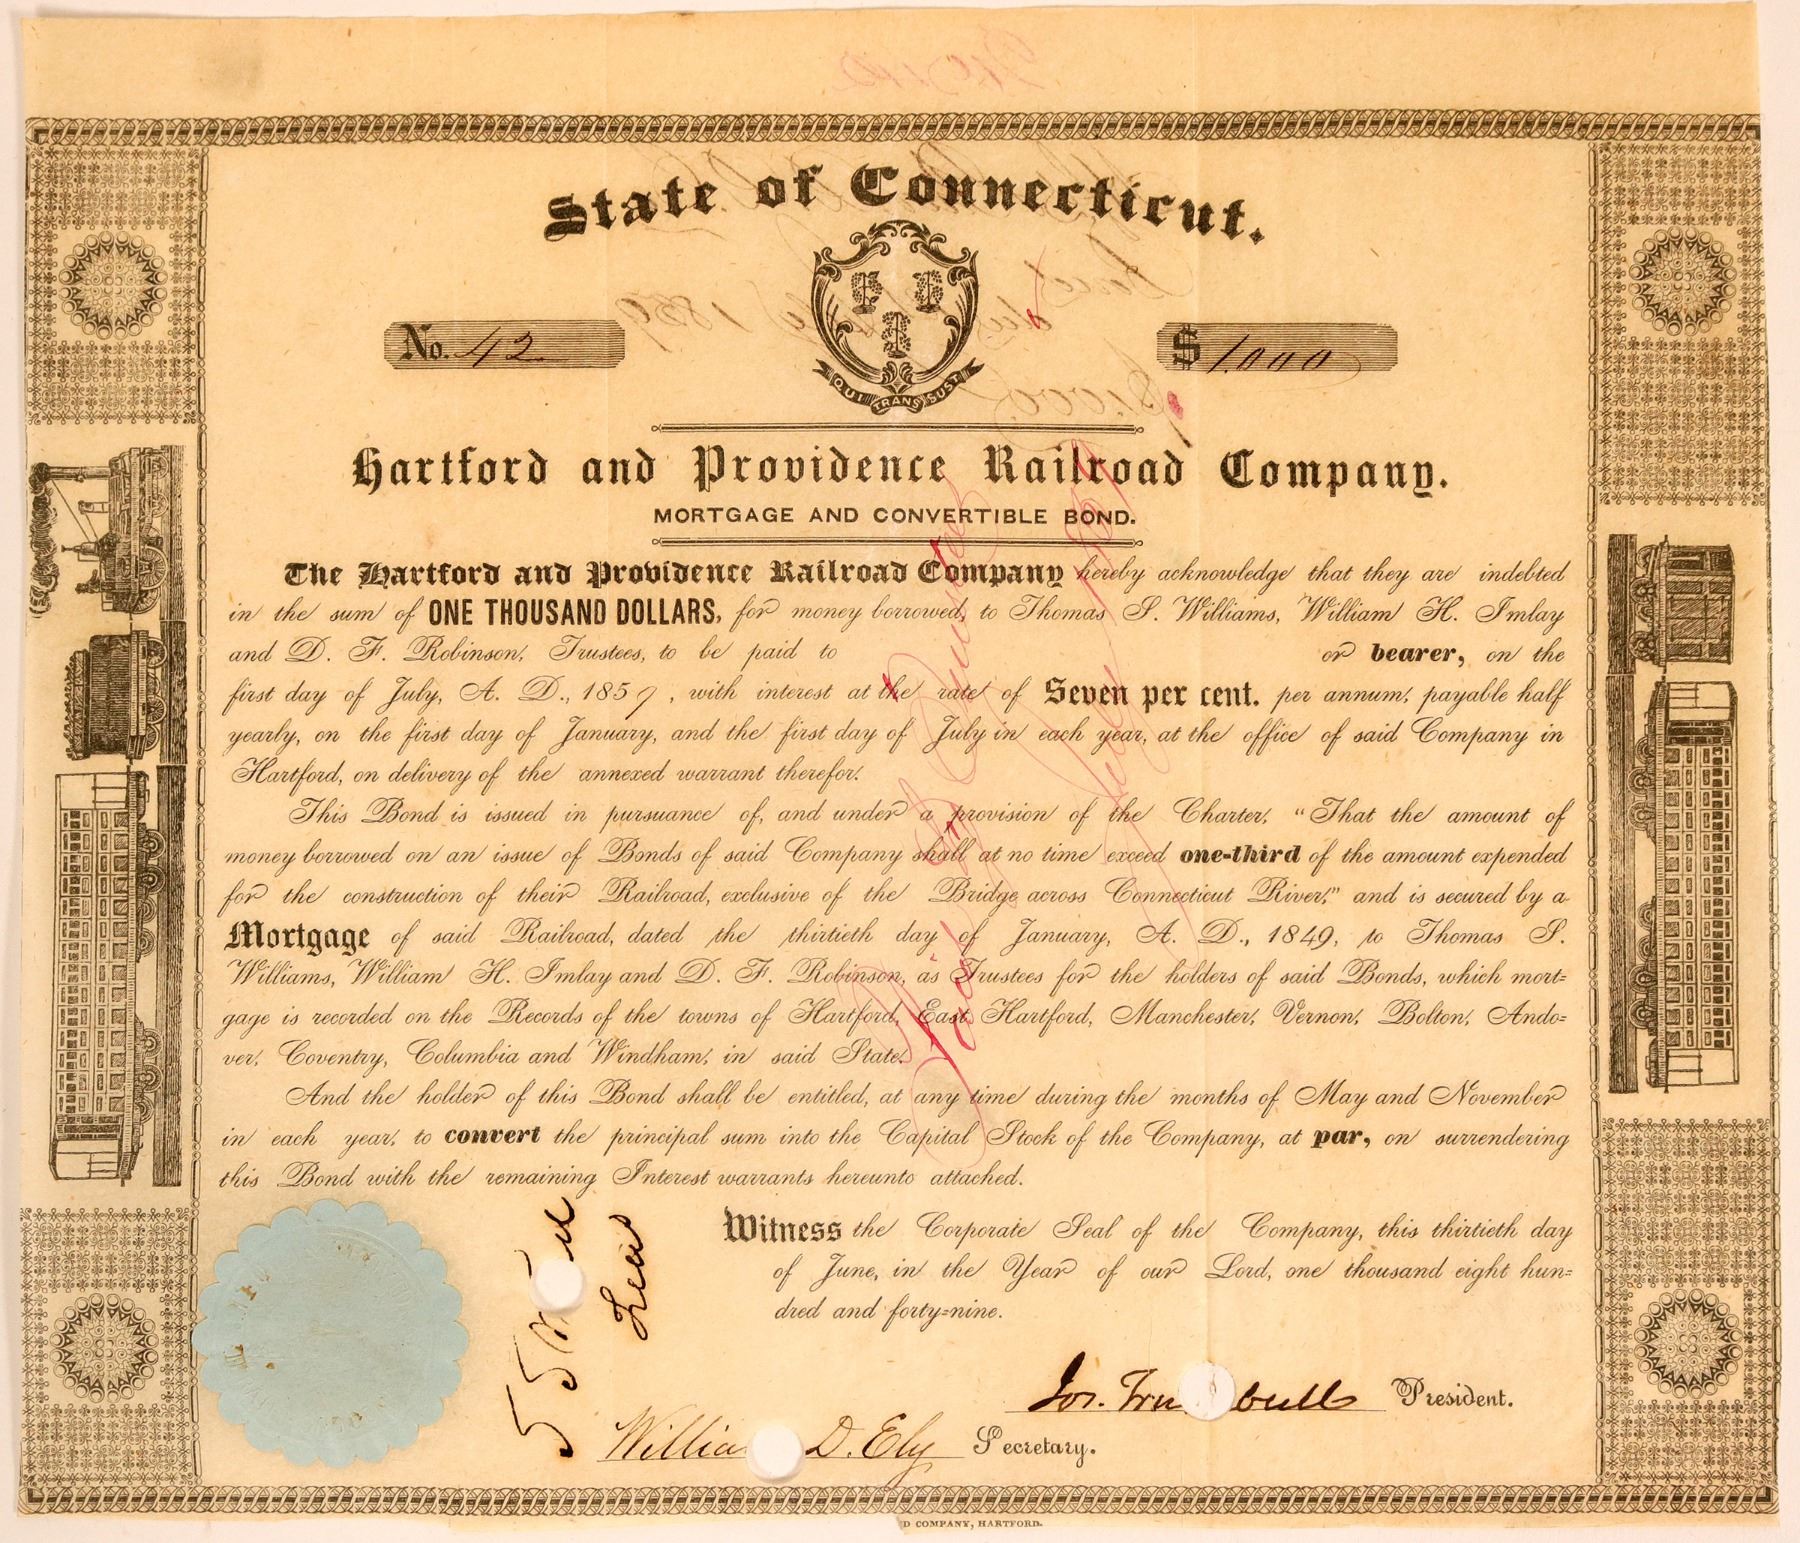 State of Connecticut.
No. 42
$ 1.000
QUI TRANS SUST
Hartford and Providence Railroad Company.
MORTGAGE AND CONVERTIBLE BOND.
The Hartford and Providence Railroad Company hereby acknowledge that they are indebted
in the sum of ONE THOUSAND DOLLARS, for money borrowed, to Thomas S. Williams, William H. Imlay
and D. F. Robinson, Trustees, to be paid to or bearer, on the
first day of July, A. D., 1859, with interest at the rate of Seven per cent. per annum, payable half
yearly, on the first day of January, and the first day of July in each year, at the office of said Company in
Hartford, on delivery of the annexed warrant therefor.
This Bond is issued in pursuance of, and under a provision of the Charter, "That the amount of
money borrowed on an issue of Bonds of said Company shall at no time exceed one-third of the amount expended
for the construction of their Railroad, exclusive of the Bridge across Connecticut River," and is secured by a
Mortgage of said Railroad, dated the thirtieth day of January, A. D., 1849, to Thomas S.
Williams, William H. Imlay and D. F. Robinson, as Trustees for the holders of said Bonds, which mort=
gage is recorded on the Records of the towns of Hartford, East Hartford, Manchester, Vernon, Bolton, Ando=
ver, Coventry, Columbia and Windham, in said State.
And the holder of this Bond shall be entitled, at any time during the months of May and November
in each year, to convert the principal sum into the Capital Stock of the Company, at par, on surrendering
this Bond with the remaining Interest warrants hereunto attached.
Witness the Corporate Seal of the Company, this thirtieth day
of June, in the Year of our Lord, one thousand eight hun=
dred and forty=nine.
Jos. Trumbull President.
William D. Ely Secretary.
D COMPANY, HARTFORD.